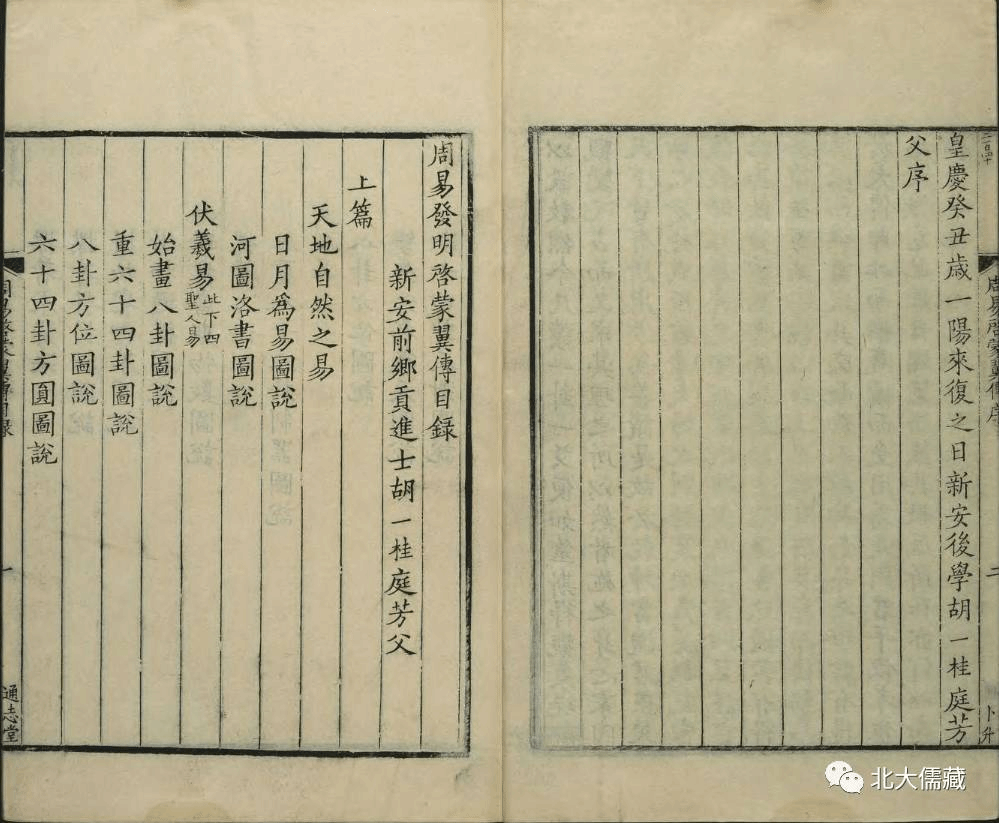 皇慶癸丑歳一陽來復之日新安後學胡一桂庭芳
父序
二百四十
周易啓蒙翼傳序
二
卜升
周易發明啓蒙翼傳目録
新安前鄉貢進士胡一桂庭芳父
上篇
天地自然之易
日月爲易圖說
河圖洛書圖說
伏羲易此下四聖人易
始畫八卦圖說
重六十四卦圖說
八卦方位圖說
六十四卦方圓圖說
周易啓蒙翼傳目録
一
通志堂
北大儒藏